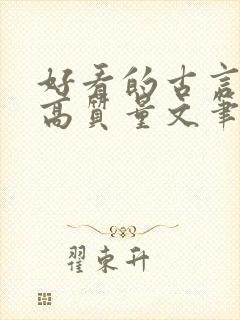 好看的古言
高质量文笔
翟东升